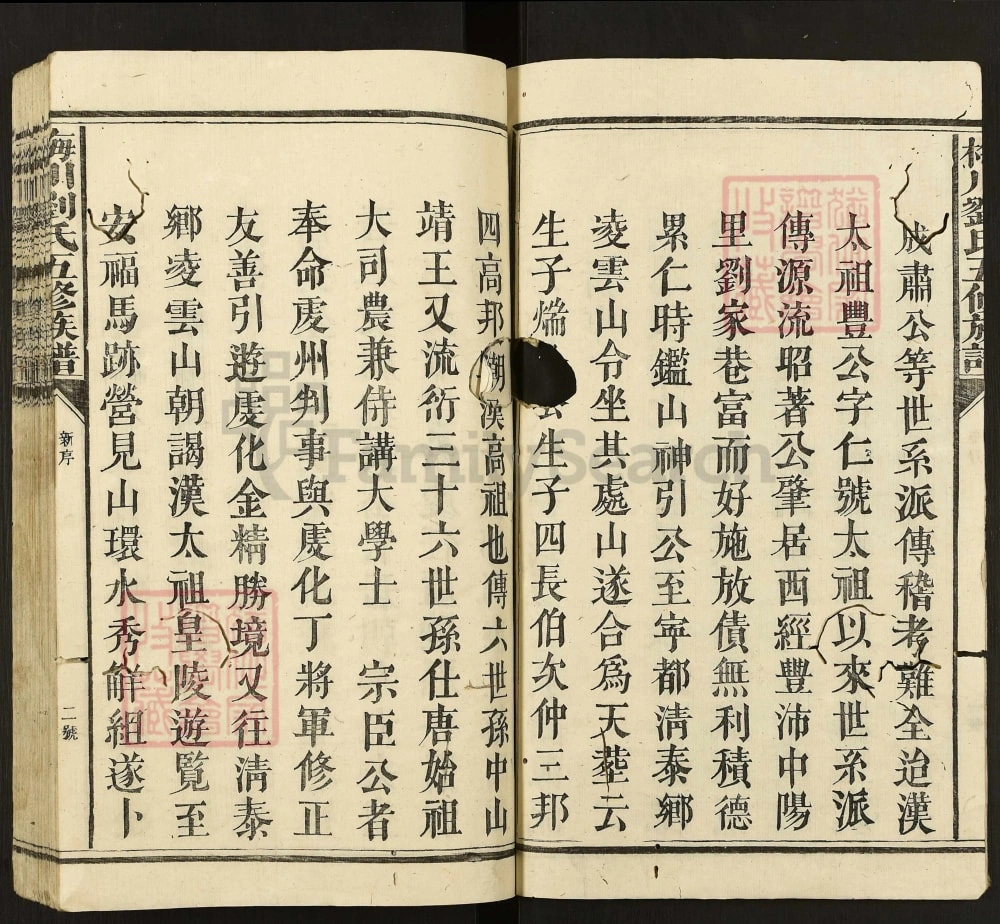 梅川劉氏五修族譜
成肅公等世系派傳稽考難全迨漢
太祖豐公字仁號太祖以來世系派
傳源流昭著公肇居西經豐沛中陽
里劉家巷富而好施放債無利積德
累仁時鑑山神引公至寧都清泰鄉
凌雲山令坐其處山遂合為天塟云
生子煓 生子四長伯次仲三邦
四高邦 漢高祖也傳六世孫中山
靖王又流衍三十六世孫仕唐始祖
大司農兼侍講大學士 宗臣公者
奉命虔州判事與虔化丁將軍修正
友善引遊虔化金精勝境又往清泰
鄉凌雲山朝謁漢太祖皇陵遊覧至
安福馬跡營見山環水秀觧組遂卜
梅川劉氏五修族譜
新序
二號
FamilySearch